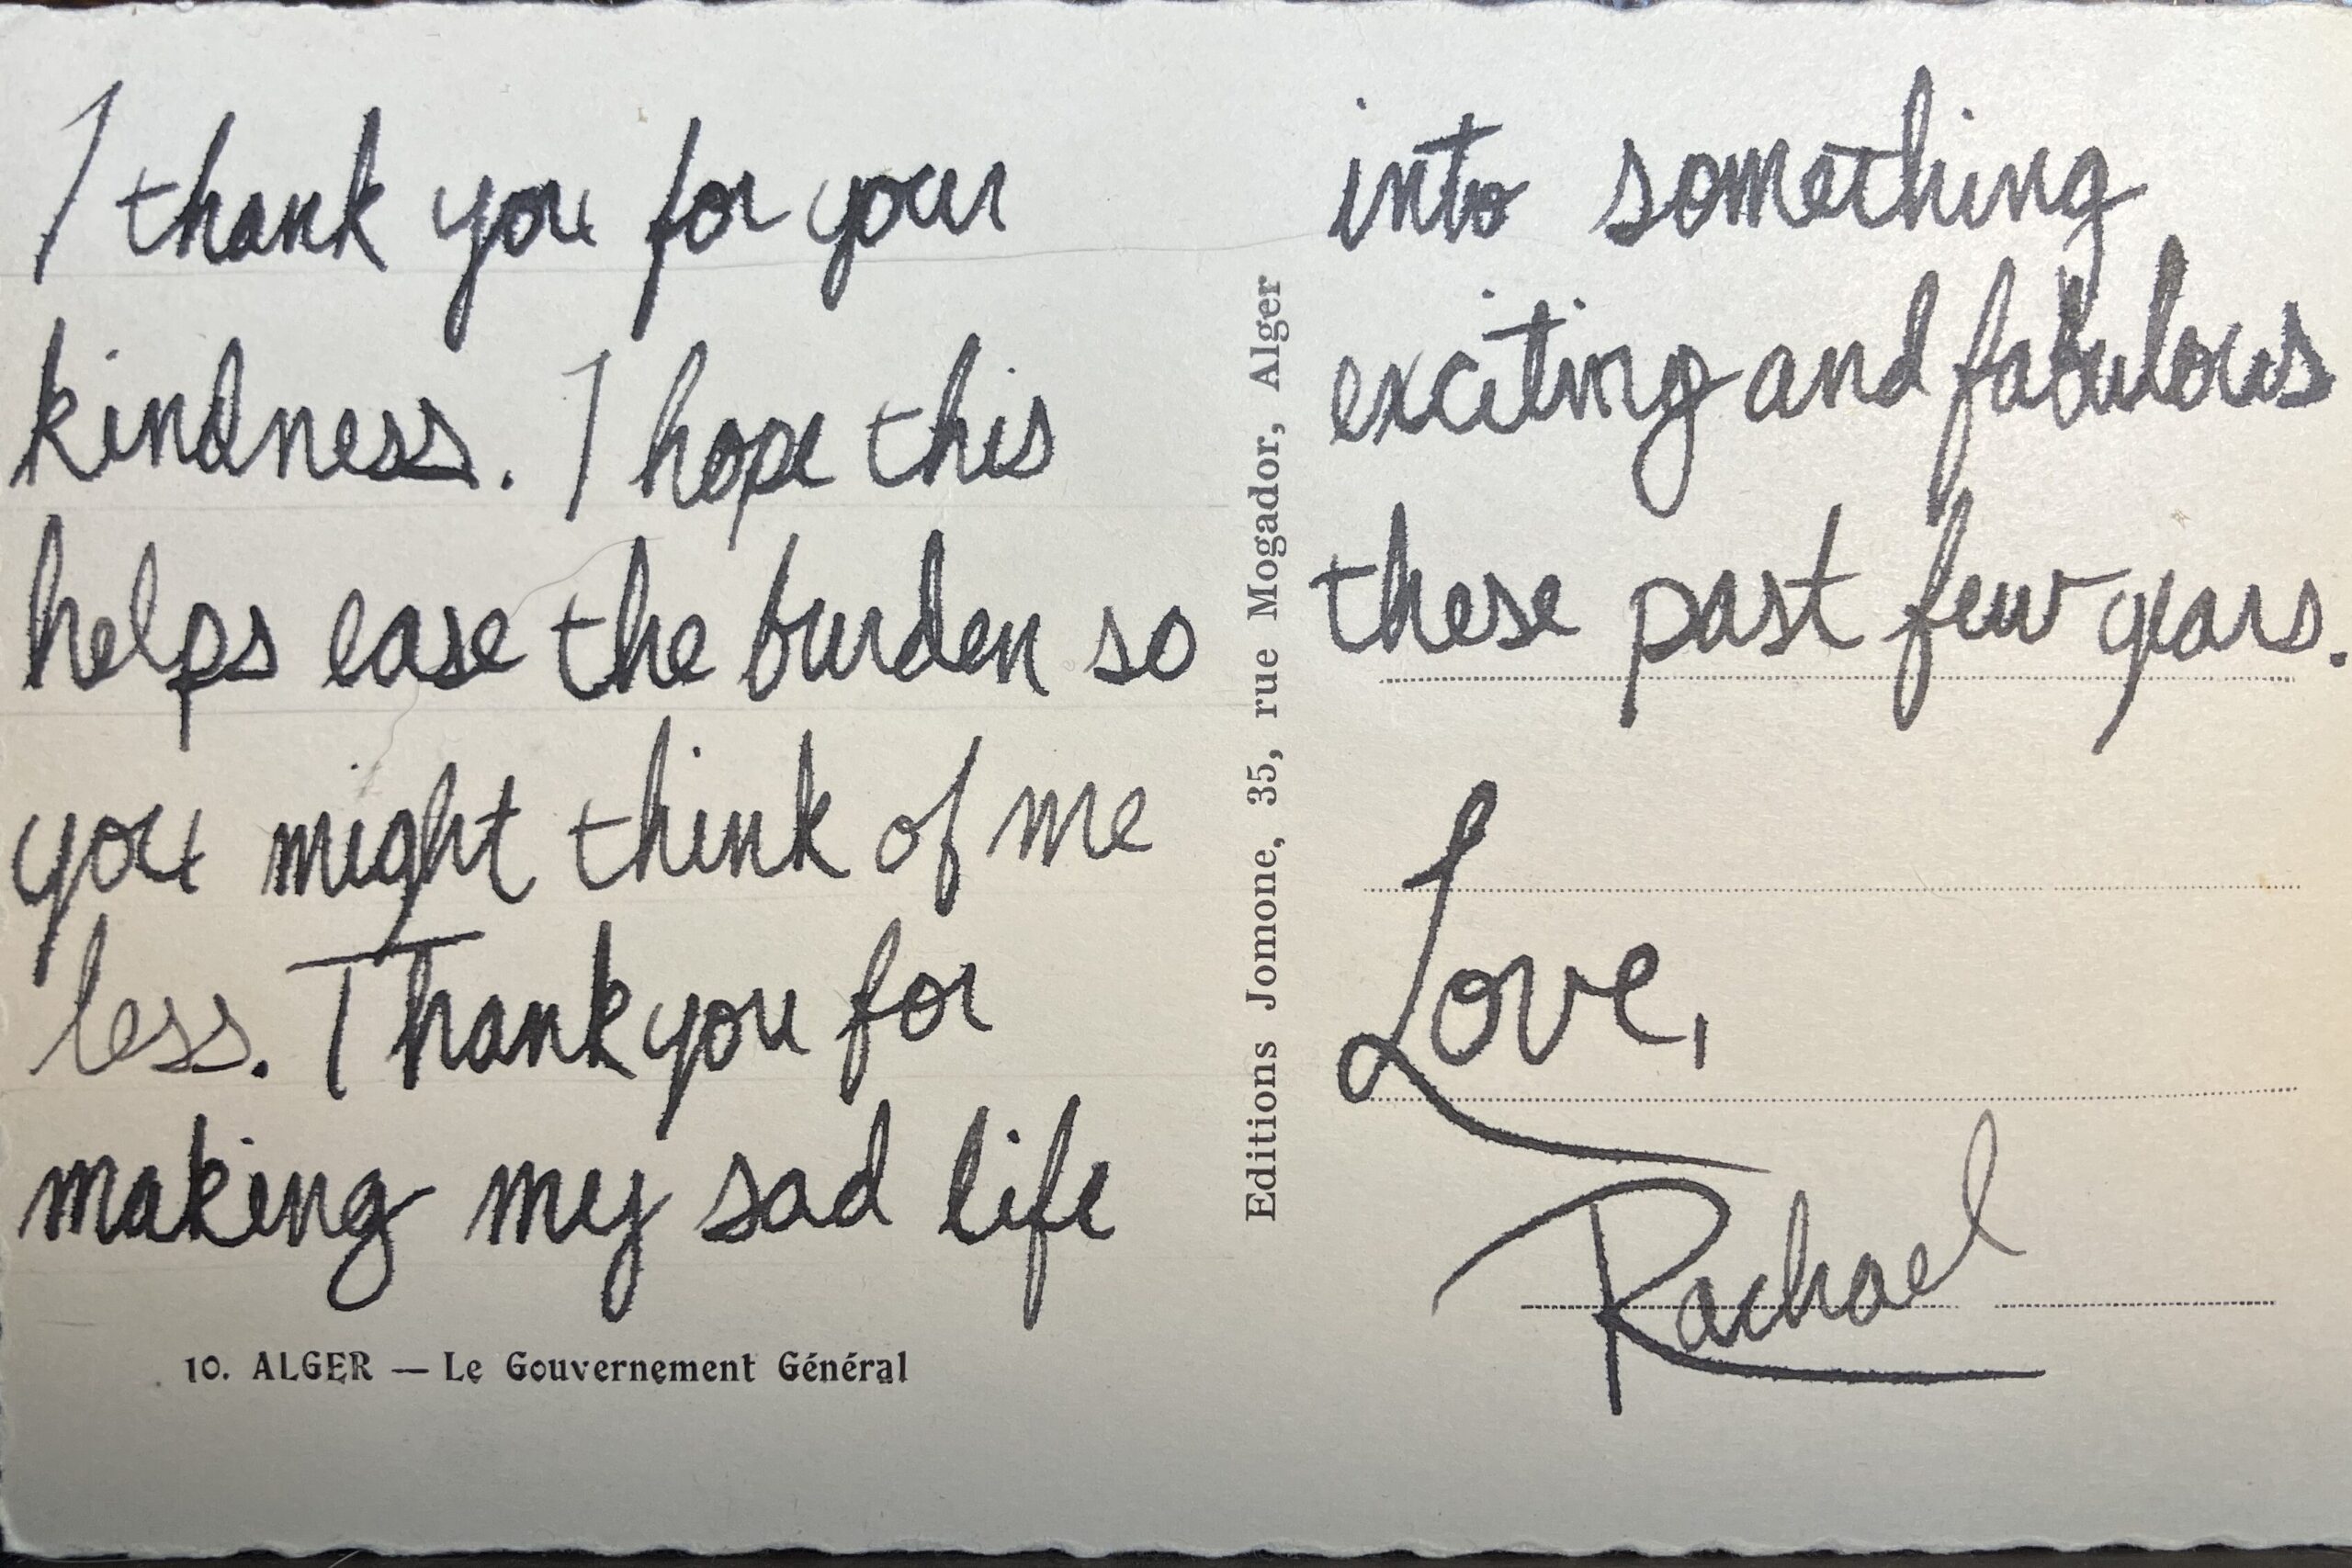 I thank you for your
kindness. I hope this
helps ease the burden so
you might think of me
less. Thank you for
making my sad life
10. ALGER — Le Gouvernement Général
Editions Jomone, 35, rue Mogador, Alger
into something
exciting and fabulous
these past few years.
Love,
Rachael